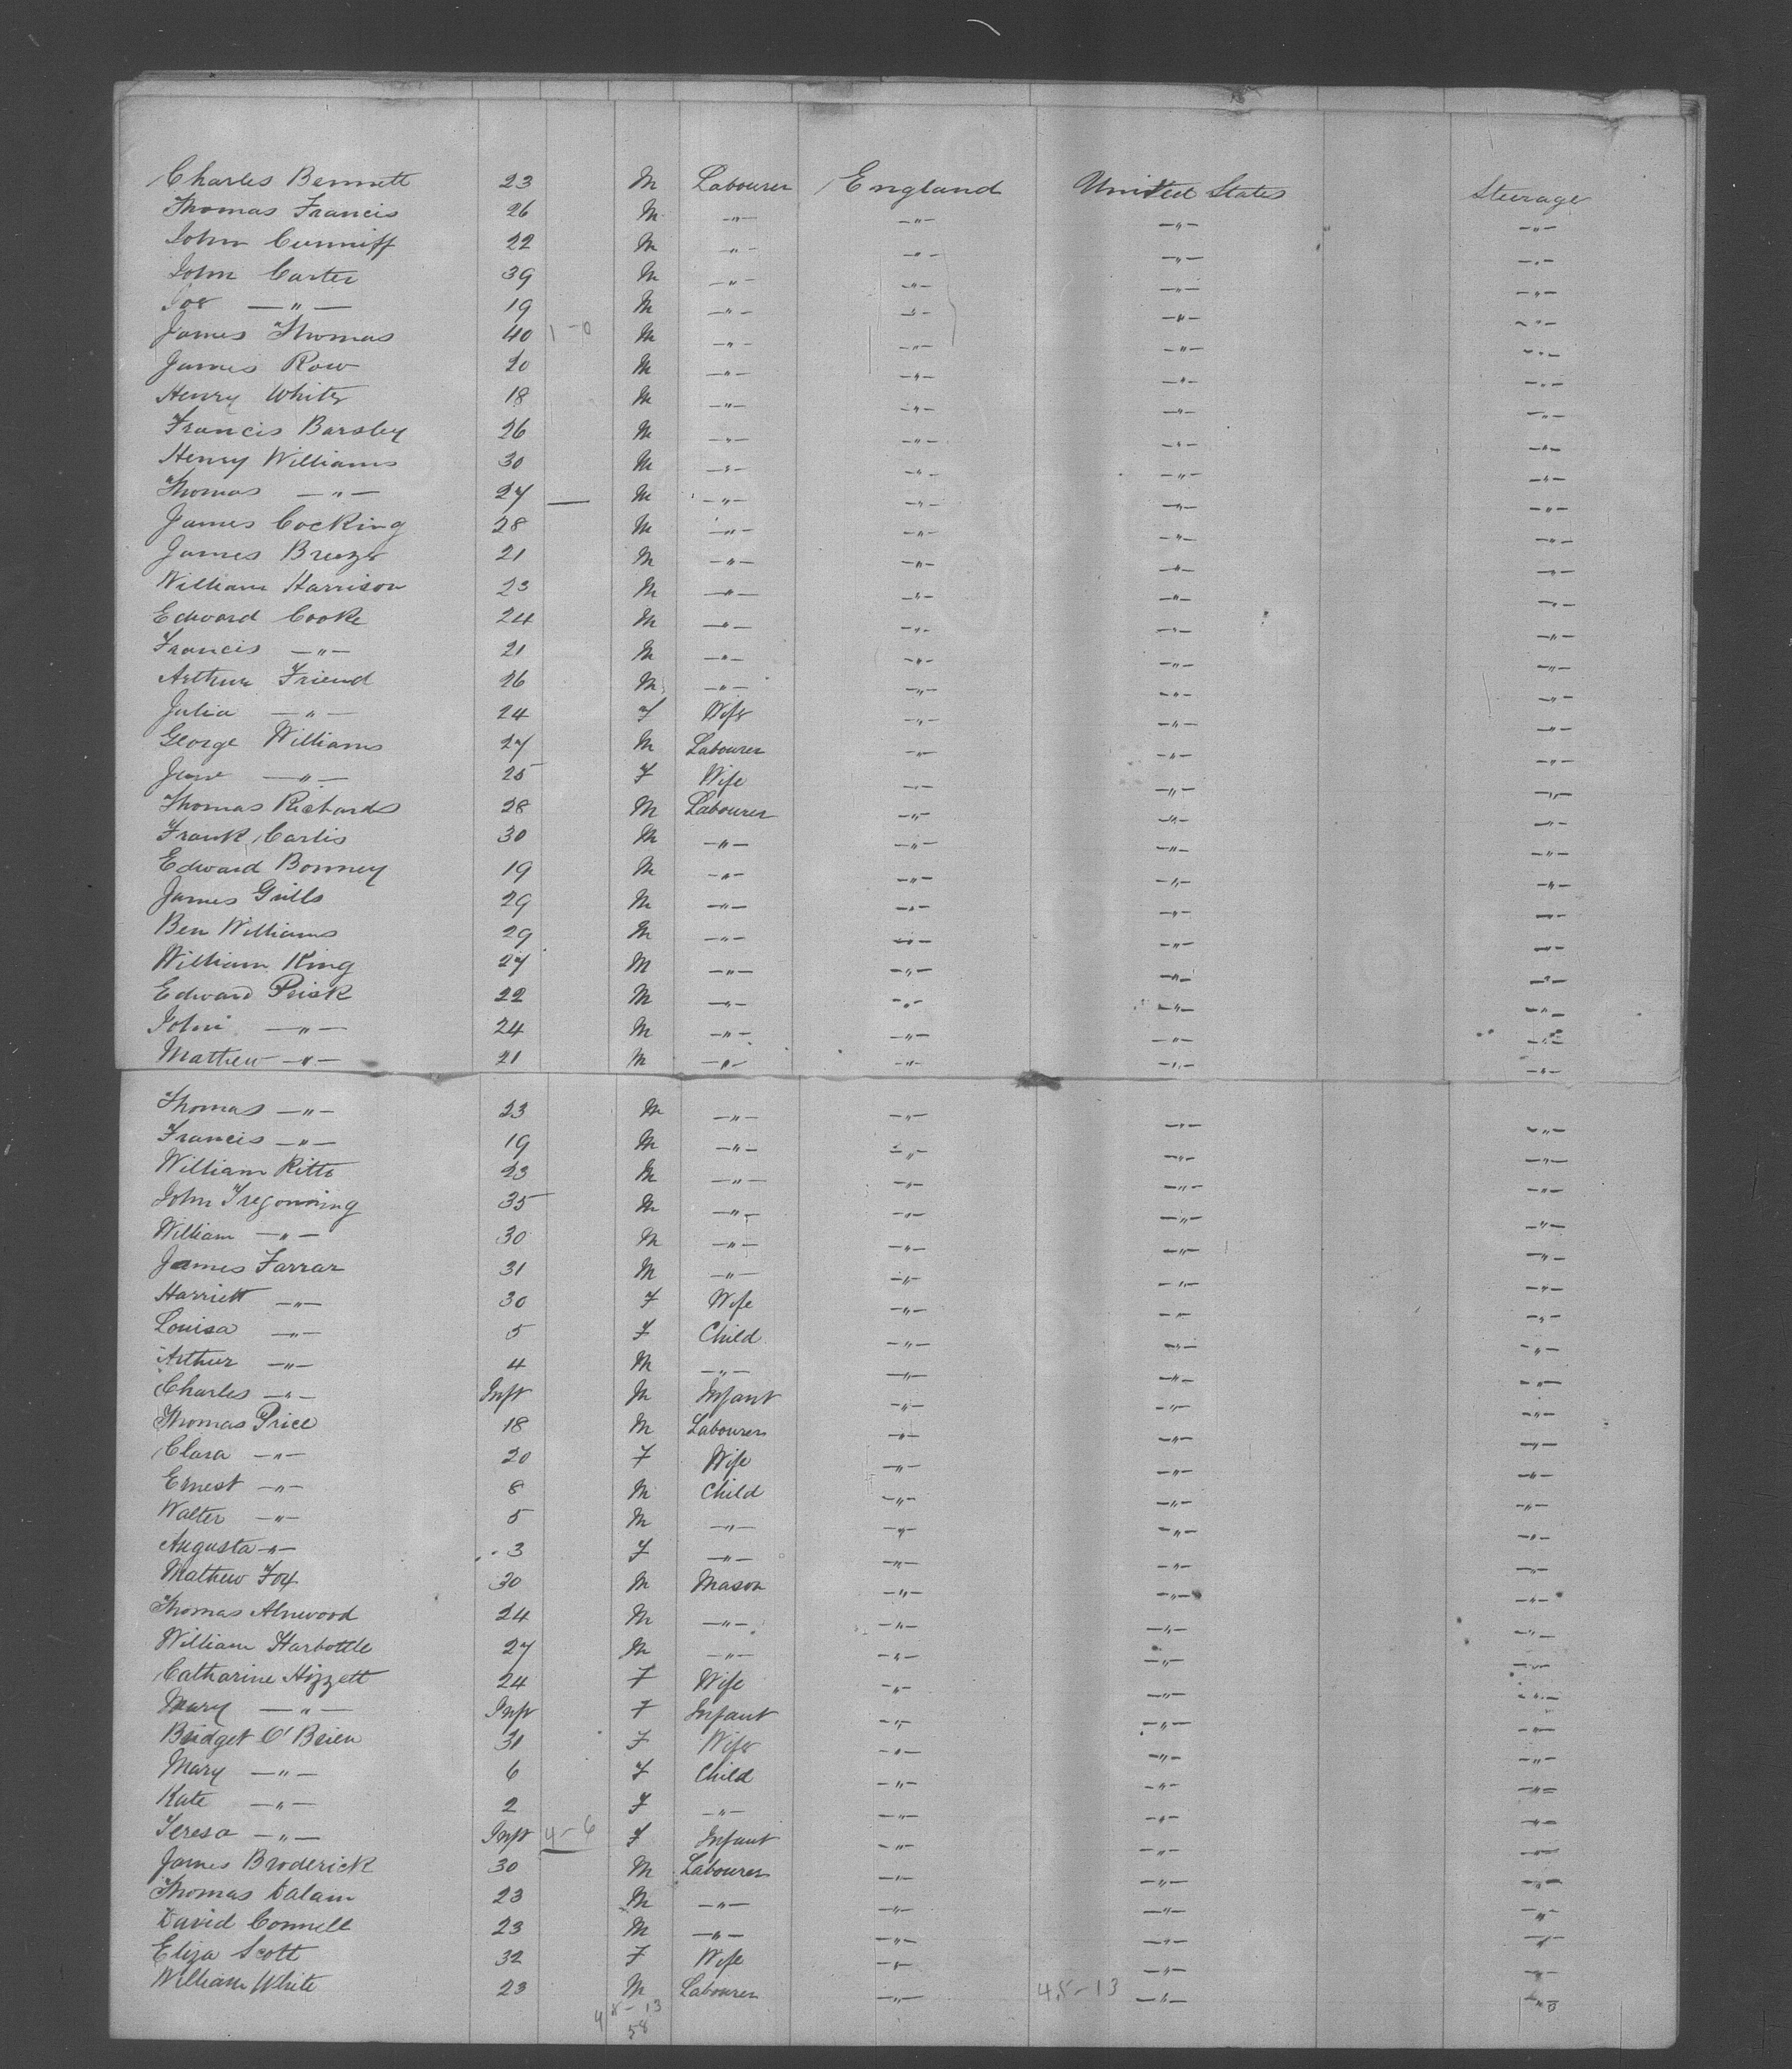 Charles Bennett 23 M Labourer England United States Steerage
Thomas Francis 26 M -"- -"- -"- -"-
John Cunniff 22 M -"- -"- -"- -"-
John Carter 39 M -"- -"- -"- -"-
Joe -"- 19 M -"- -"- -"- -"-
James Thomas 40 1-0 M -"- -"- -"- -"-
James Row 20 M -"- -"- -"- -"-
Henry White 18 M -"- -"- -"- -"-
Francis Barsley 26 M -"- -"- -"- -"-
Henry Williams 30 M -"- -"- -"- -"-
Thomas -"- 27 — M -"- -"- -"- -"-
James Cocking 28 M -"- -"- -"- -"-
James Breeze 21 M -"- -"- -"- -"-
William Harrison 23 M -"- -"- -"- -"-
Edward Cooke 24 M -"- -"- -"- -"-
Francis -"- 21 M -"- -"- -"- -"-
Arthur Friend 26 M -"- -"- -"- -"-
Julia -"- 24 F Wife -"- -"- -"-
George Williams 27 M Labourer -"- -"- -"-
Jane -"- 25 F Wife -"- -"- -"-
Thomas Richards 28 M Labourer -"- -"- -"-
Frank Carlis 30 M -"- -"- -"- -"-
Edward Bonney 19 M -"- -"- -"- -"-
James Grills 29 M -"- -"- -"- -"-
Ben Williams 29 M -"- -"- -"- -"-
William King 27 M -"- -"- -"- -"-
Edward Prisk 22 M -"- -"- -"- -"-
John -"- 24 M -"- -"- -"- -"-
Mathew -"- 21 M -"- -"- -"- -"-
Thomas -"- 23 M -"- -"- -"- -"-
Francis -"- 19 M -"- -"- -"- -"-
William 23 M -"- -"- -"- -"-
John Tregonning 35 M -"- -"- -"- -"-
William -"- 30 M -"- -"- -"- -"-
James Farrar 31 M -"- -"- -"- -"-
Harriett -"- 30 F Wife -"- -"- -"-
Louisa -"- 5 F Child -"- -"- -"-
Arthur -"- 4 M -"- -"- -"- -"-
Charles -"- Inft M Infant -"- -"- -"-
Thomas Price 18 M Labourer -"- -"- -"-
Clara -"- 20 F Wife -"- -"- -"-
Ernest -"- 8 M Child -"- -"- -"-
Walter -"- 5 M -"- -"- -"- -"-
Augusta -"- 3 F -"- -"- -"- -"-
Mathew Fox 30 M Mason -"- -"- -"-
Thomas Alnwood 24 M -"- -"- -"- -"-
William Harbottle 27 M -"- -"- -"- -"-
Catharine Hizzett 24 F Wife -"- -"- -"-
Mary -"- Inft F Infant -"- -"- -"-
Bridget O'Brien 31 F Wife -"- -"- -"-
Mary -"- 6 F Child -"- -"- -"-
Kate -"- 2 F -"- -"- -"- -"-
Teresa -"- Inft 4-6 F Infant -"- -"- -"-
James Broderick 30 M Labourer -"- -"- -"-
Thomas Dalain 23 M -"- -"- -"- -"-
David Connell 23 M -"- -"- -"- -"-
Eliza Scott 32 F Wife -"- -"- -"-
William White 23 M Labourer -"- 45-13 -"- -"-
58